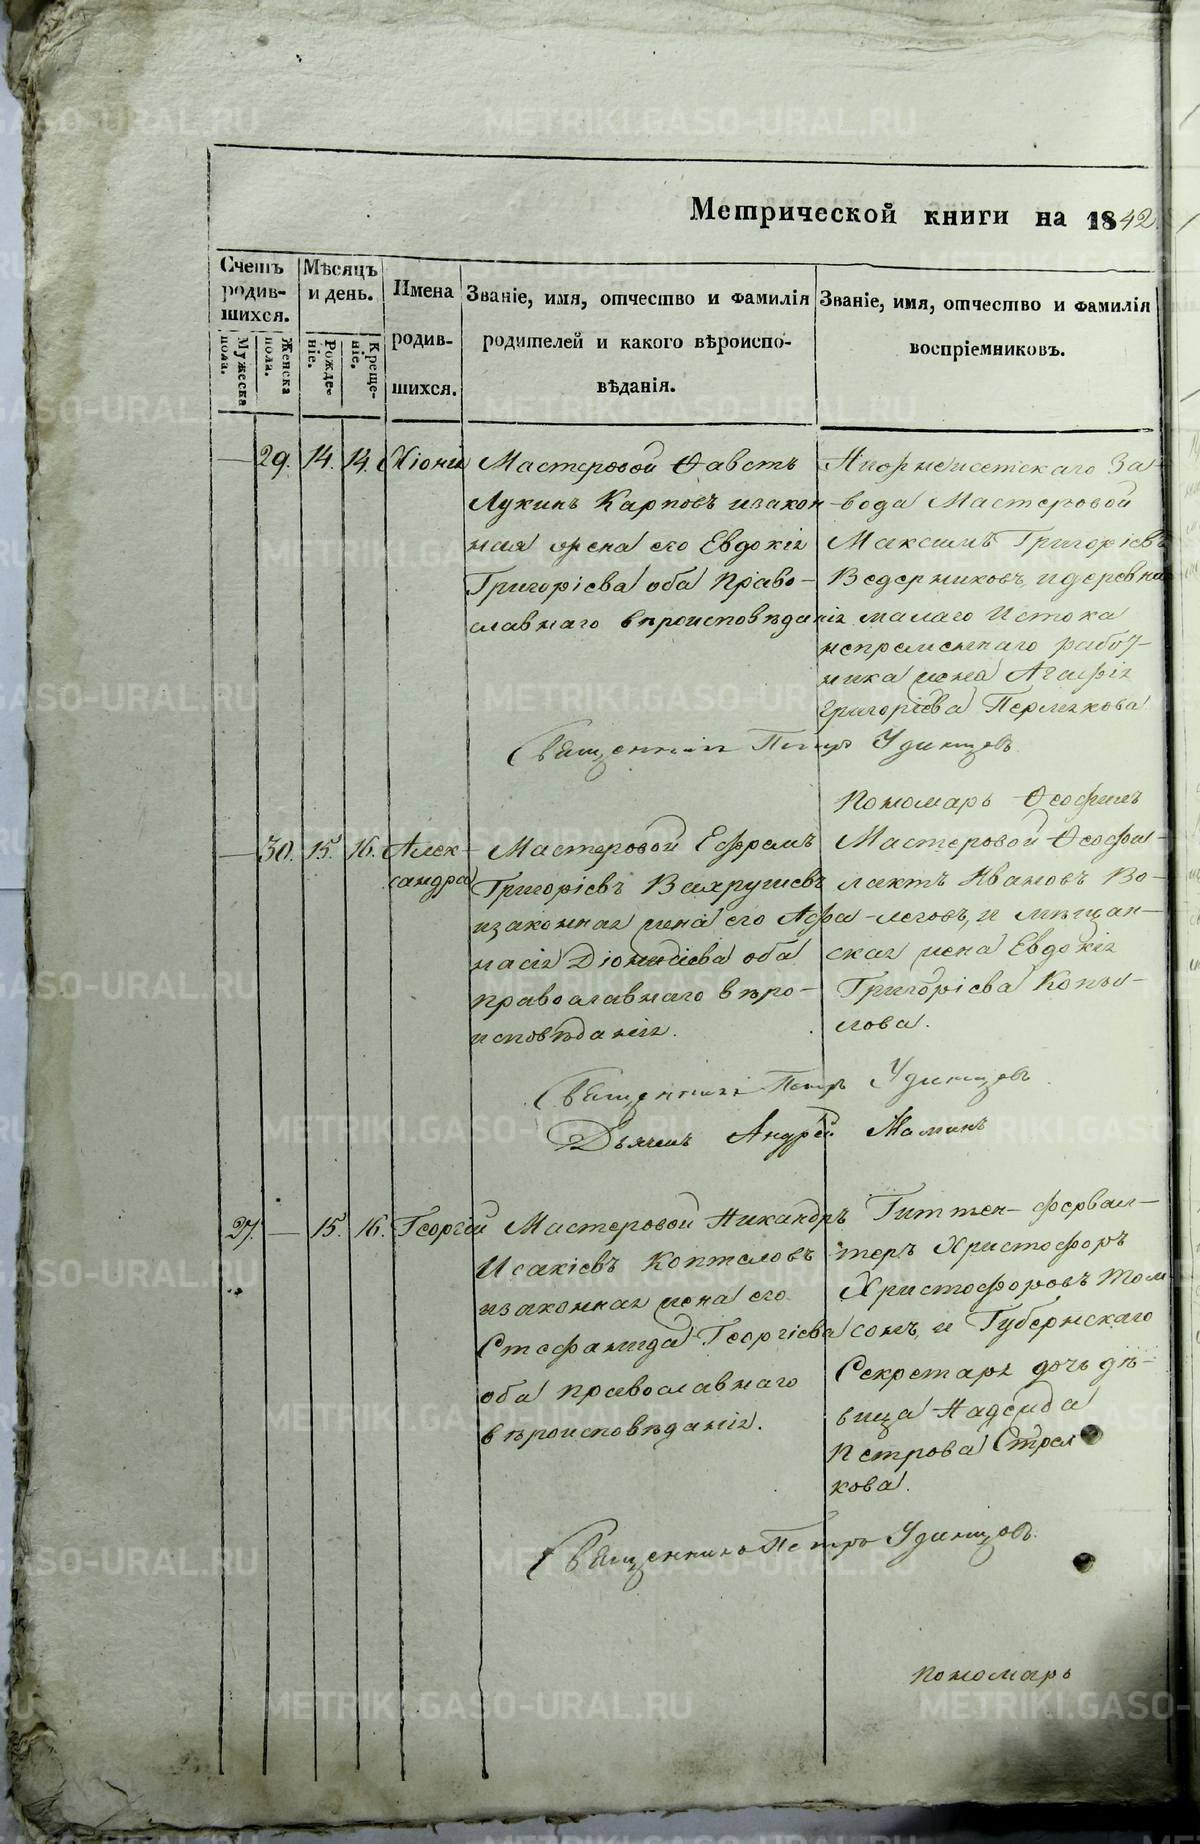 Метрической книги на 1842.
Счетъ родив-шихся.
Мужеска пола.
Женска пола.
Мѣсяцъ и день.
Рожде-ніе.
Креще-ніе.
Имена родив-шихся.
Званіе, имя, отчество и фамилія
родителей и какого вѣроиспо-
вѣданія.
Званіе, имя, отчество и фамилія
воспріемниковъ.
— 29. 14. 14. Хіонія
Мастеровой Ѳавстъ
Лукинъ Карповъ изакон
ная жена его Евдокія
Григоріева оба право-
славнаго вѣроисповѣданія
завода Мастеровой
Максимъ Григоріевъ
Ведерниковъ, идеревни
малаго Истока
непременнаго работ-
ника жена Агафія
Григоріева
Священникъ Петръ Удинцовъ.
Пономарь Ѳеофилъ
— 30. 15. 16. Алек-
сандра
Мастеровой Ефремъ
Григоріевъ Вахрушевъ
изаконная жена его Афа-
насія Діонисіева оба
православнаго вѣро-
исповѣданія.
Мастеровой Ѳеофи-
лактъ Ивановъ Во-
логовъ, и мѣщан-
ская жена Евдокія
Григоріева Копы-
лова.
Священникъ Петръ Удинцовъ.
Дьячекъ Андрей Маминъ
27. — 15. 16. Георгій
Мастеровой Никандръ
Исакіевъ Коптеловъ
изаконная жена его
Стефанида Георгіева
оба православнаго
вѣроисповѣданія.
Гиттен-фервал-
теръ Христофоръ
Христофоровъ Том
сонъ, и Губернскаго
Секретаря дочь дѣ-
вица Надежда
Петрова Стрел
кова.
Священникъ Петръ Удинцовъ.
Пономарь
METRIKI.GASO-URAL.RU